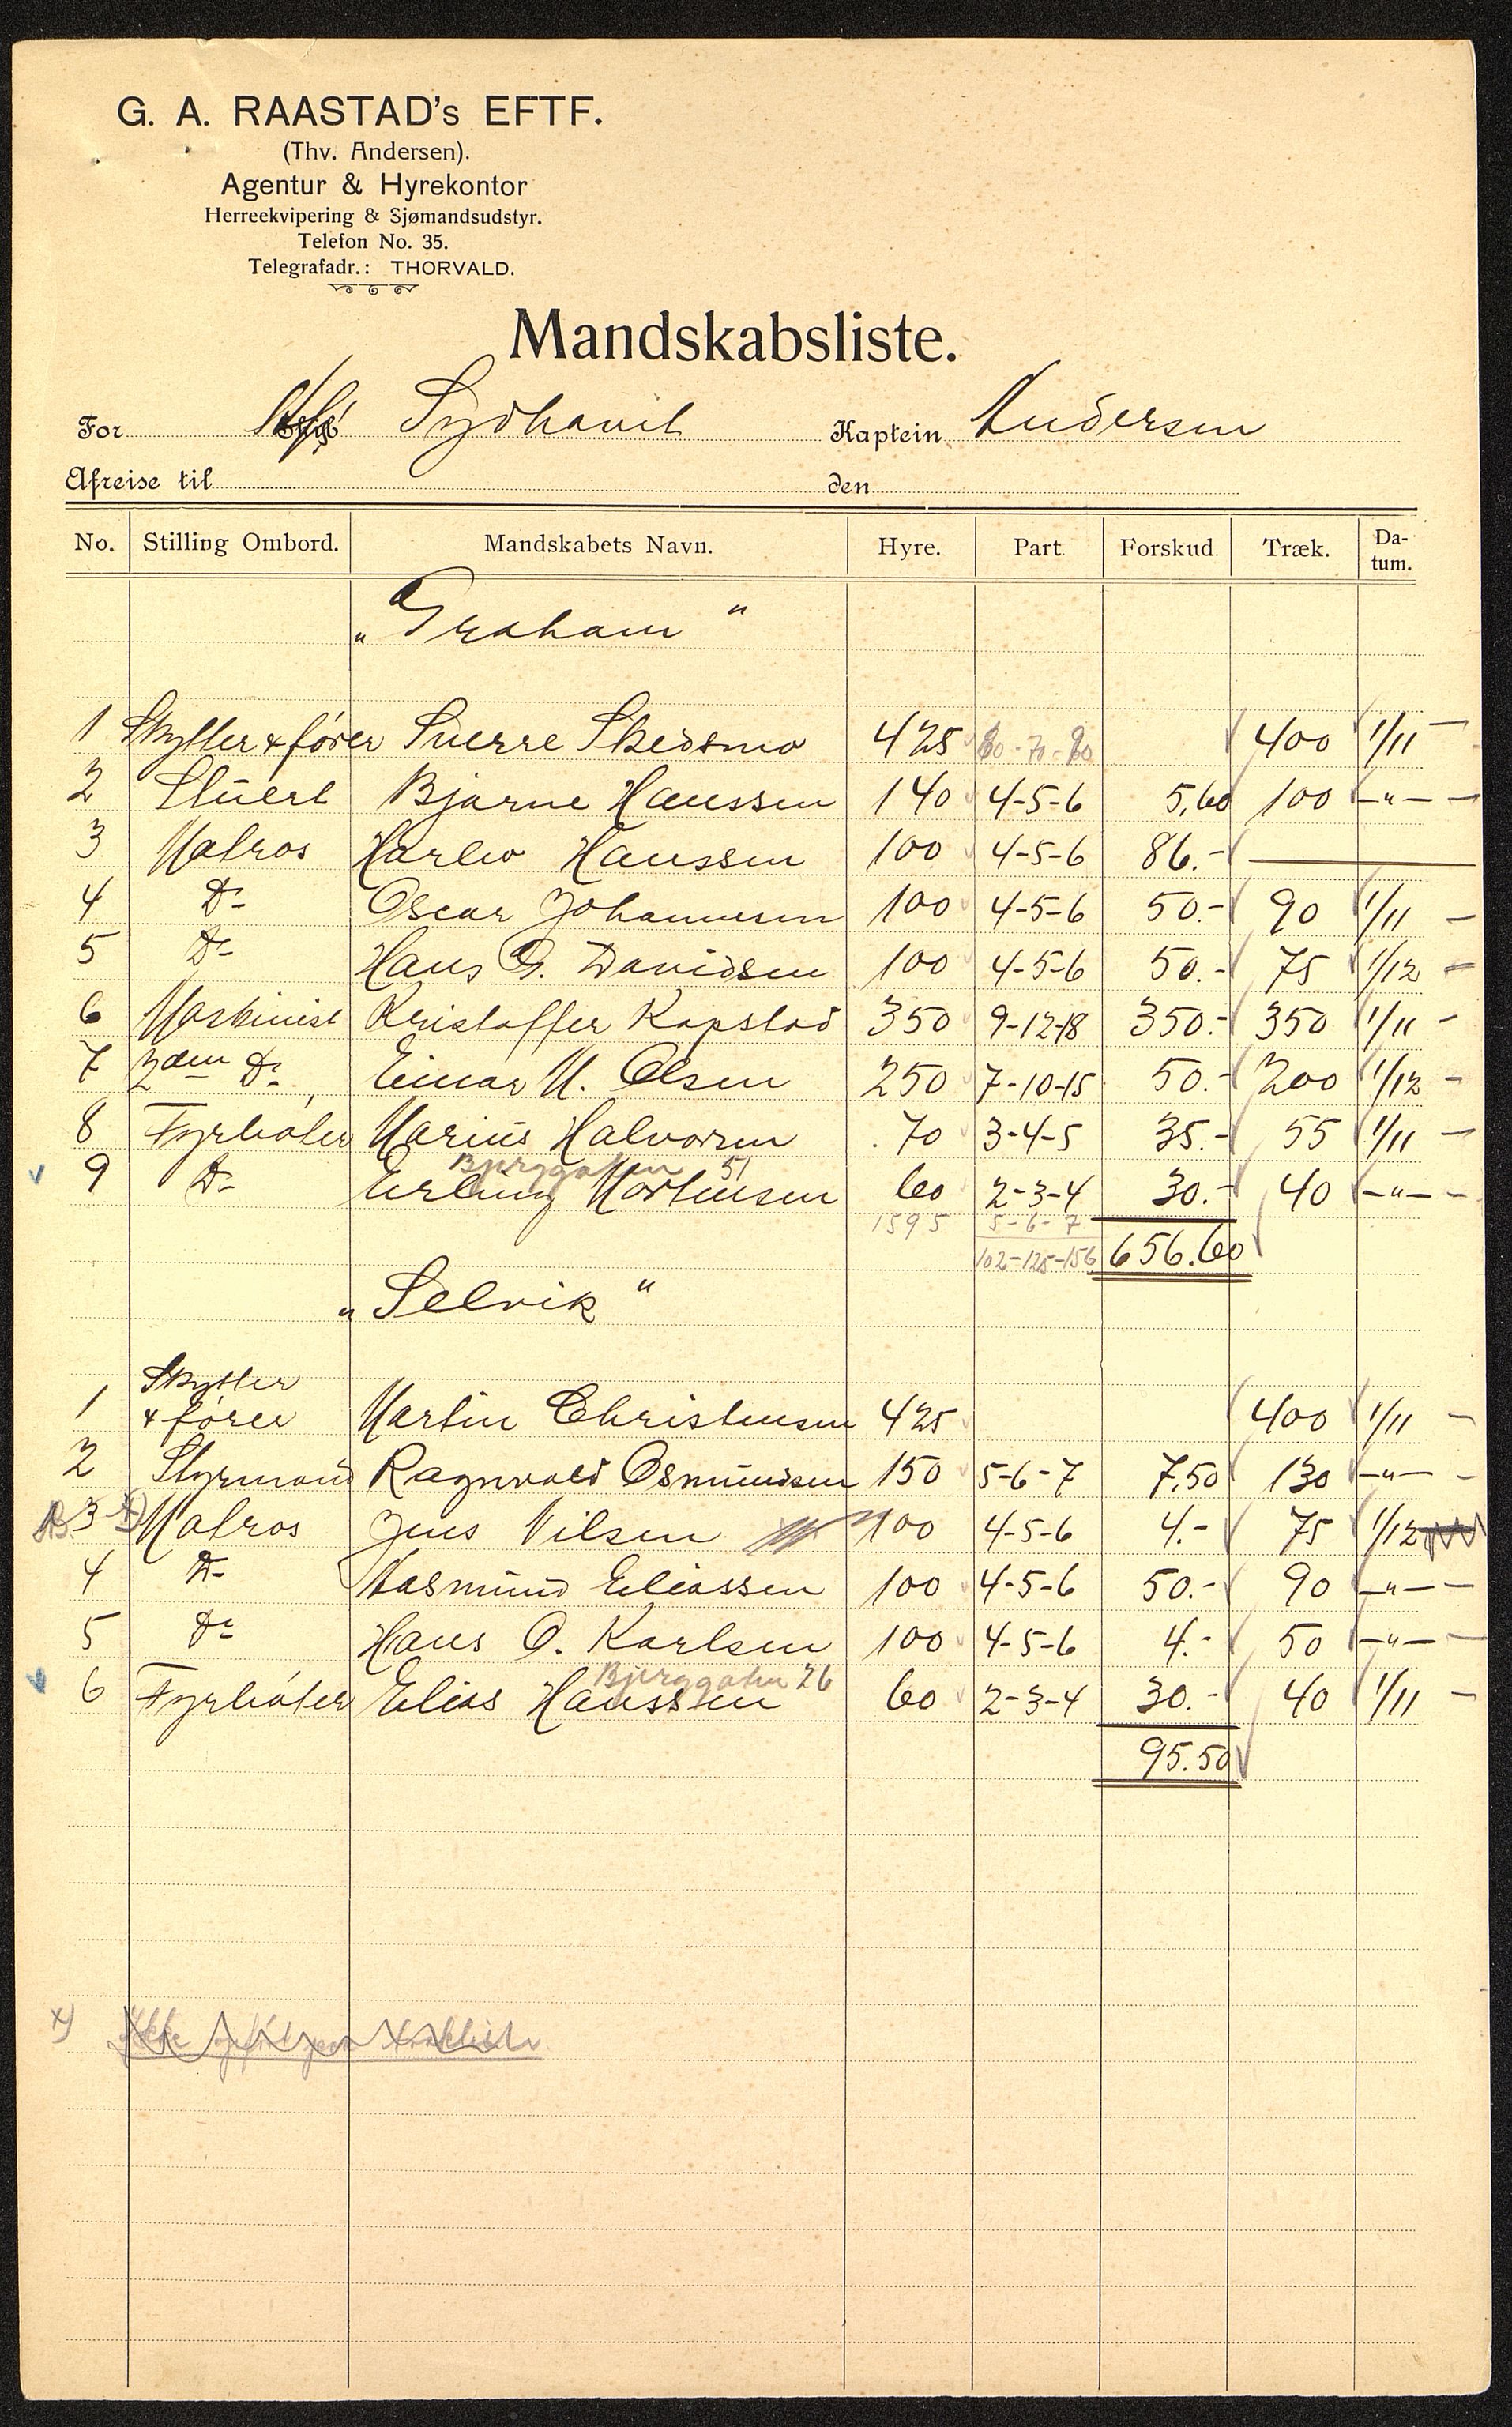 G. A. RAASTAD's EFTF.
(Thv. Andersen).
Agentur & Hyrekontor
Herreekvipering & Sjømandsudstyr.
Telefon No. 35.
Telegrafadr.: THORVALD.
Mandskabsliste.
For Sydhavet Kaptein Andersen
Afreise til den
No. Stilling Ombord. Mandskabets Navn. Hyre. Part Forskud Træk. Da-tum.
„Graham"
1 Skytter & fører Sverre Skedsmo 425 400 1/11 —
2 Stuert Bjarne Hanssen 140 4-5-6 5,60 100 —"— —
3 Matros Harlew Hanssen 100 4-5-6 86.- —
4 Do Oscar Johannesen 100 4-5-6 50.- 90 1/11 —
5 Do Hans G. Davidsen 100 4-5-6 50.- 75 1/12 —
6 Maskinist Kristoffer Kopstad 350 9-12-18 350.- 350 1/11 —
7 2den Do Einar M. Olsen 250 7-10-15 50.- 200 1/12 —
8 Fyrbøter Marius Halvorsen 70 3-4-5 35.- 55 1/11 —
Bjerggaten 51
9 Do Erling Mortensen 60 2-3-4 30.- 40 —"— —
1595 5-6-7
102-125-156 656.60
„Selvik"
Skytter
1 & fører Martin Christensen 425 400 1/11 —
2 Styrmand Ragnvald Osmundsen 150 5-6-7 7,50 130 —"— —
3 x) Matros Jens Nilsen 100 4-5-6 4.- 75 1/12
4 Do Aasmund Eliassen 100 4-5-6 50.- 90 —"— —
5 Do Hans O. Karlsen 100 4-5-6 4.- 50 —"— —
Bjerggaten 26
6 Fyrbøter Elias Hanssen 60 2-3-4 30.- 40 1/11 —
95.50
x)